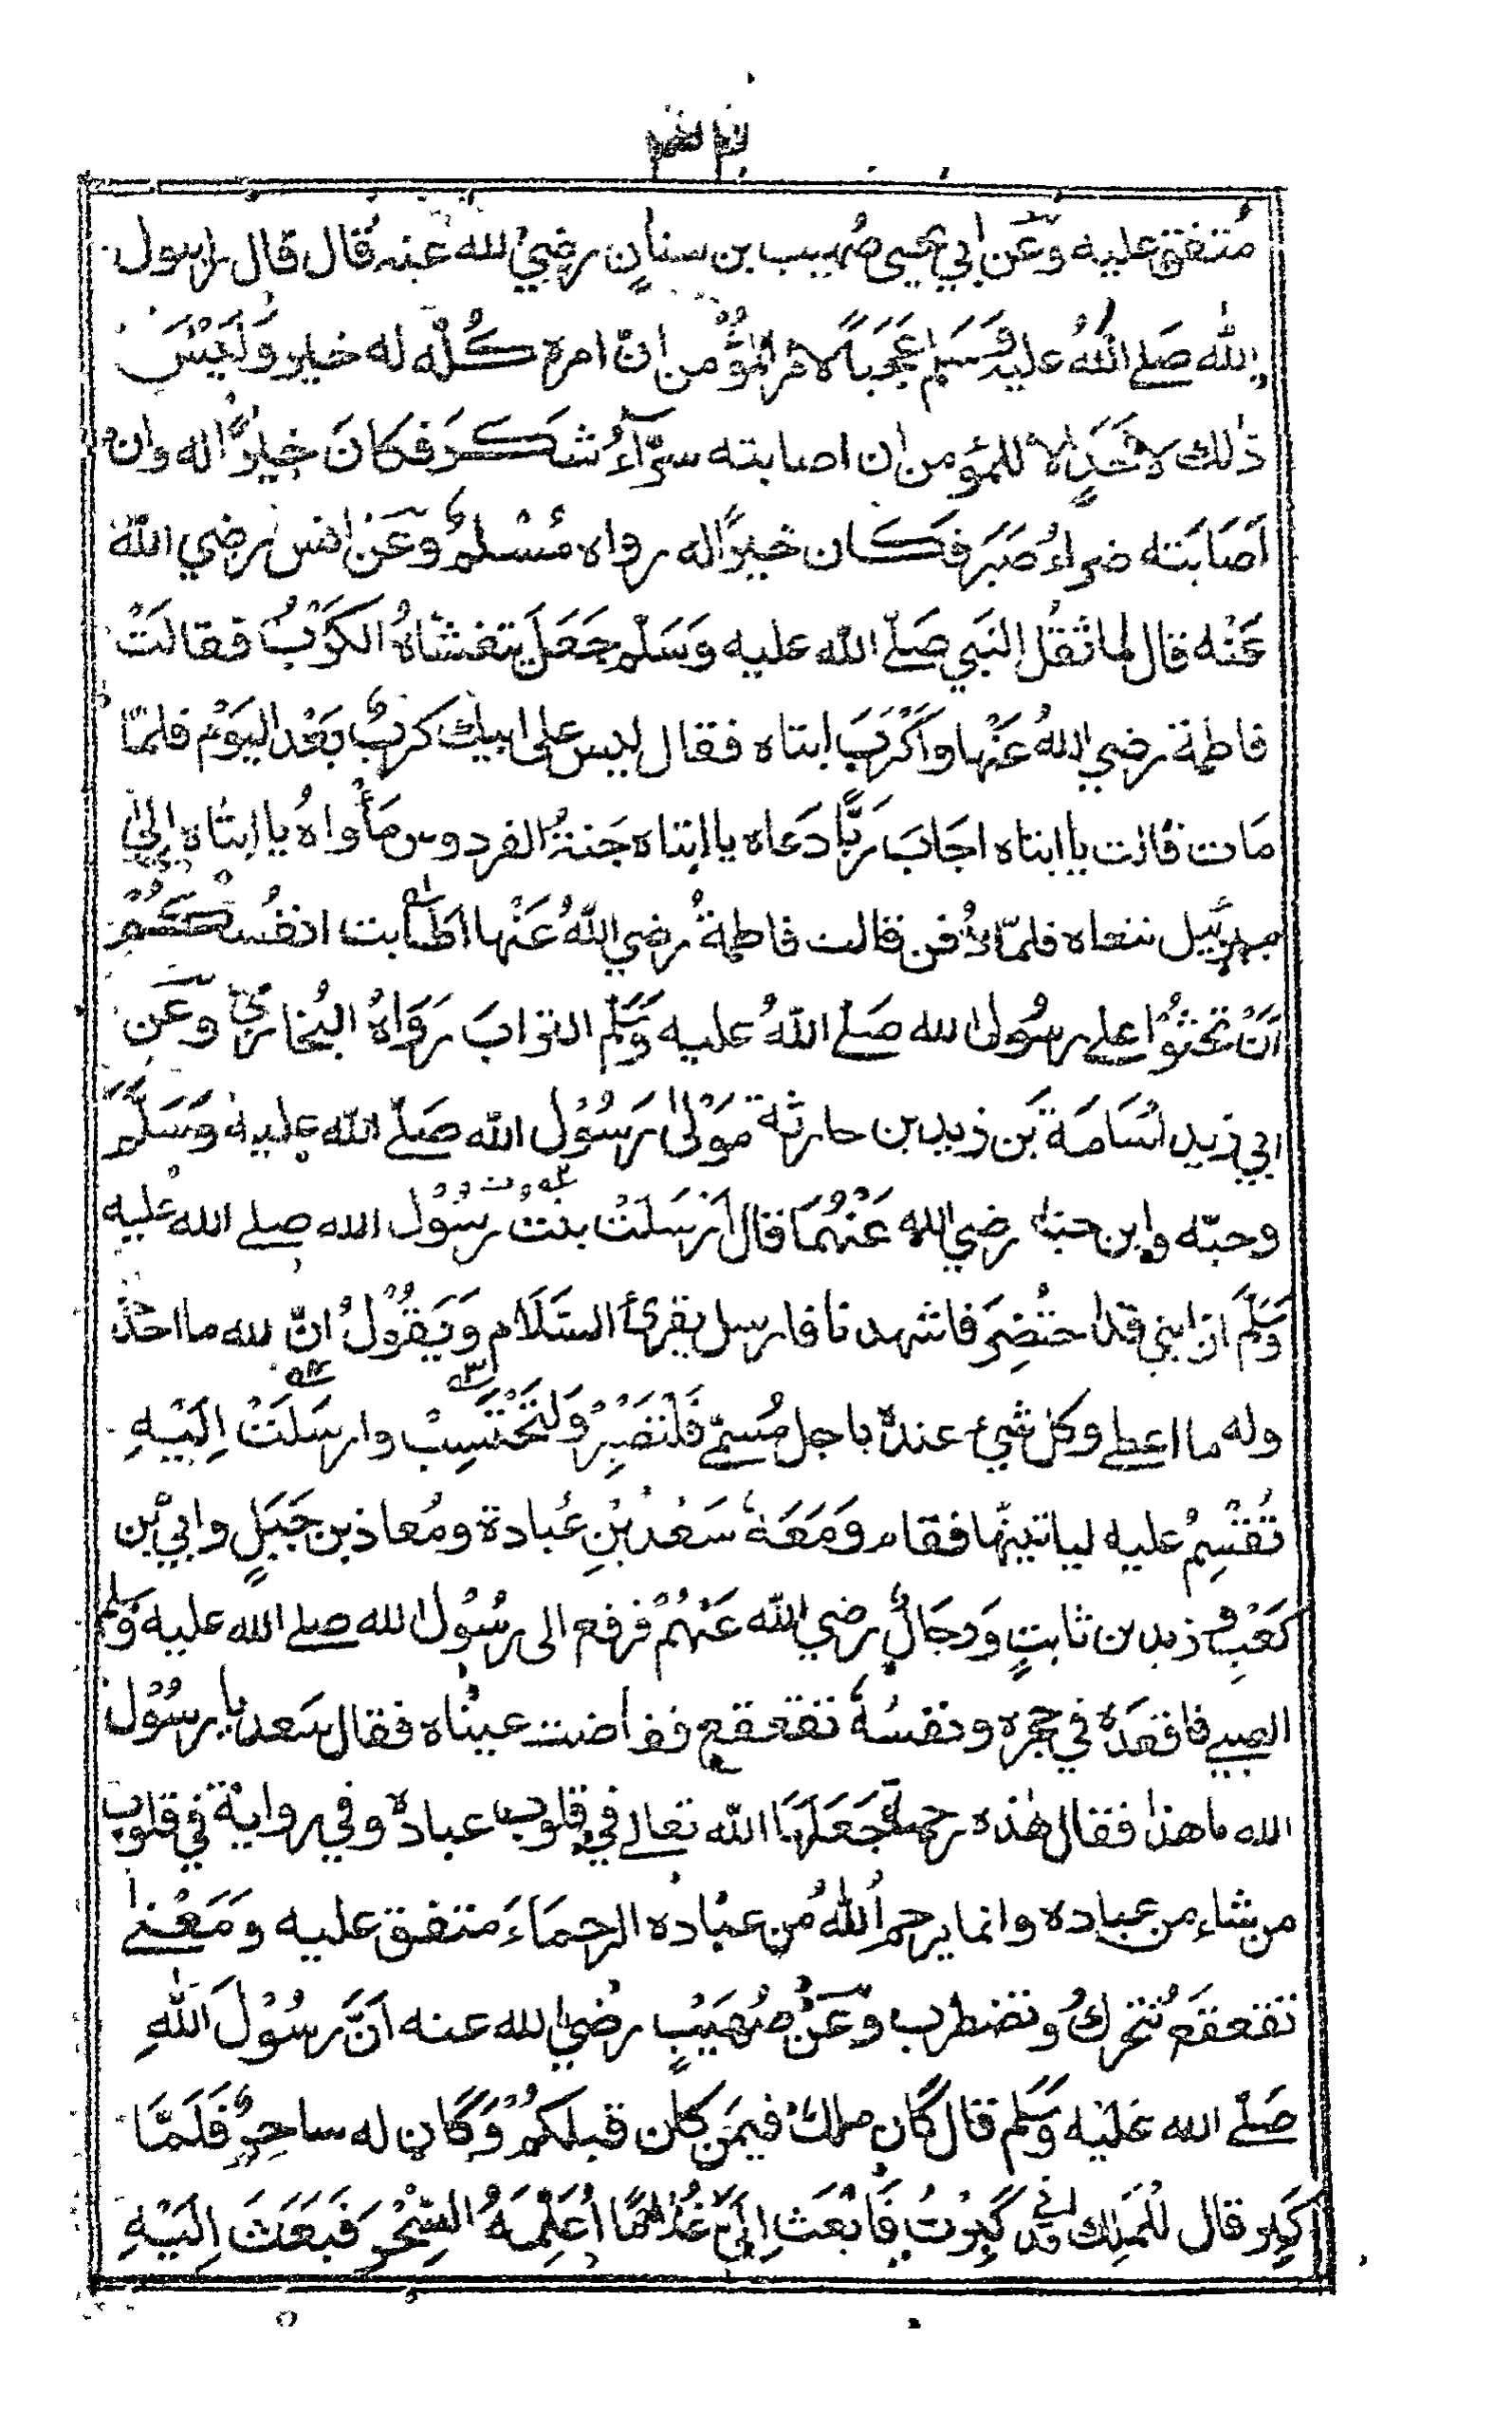 مُتفق عليه وعَن ابي يحيى صُهيب بن سنانٍ رضيَ الله عنه قال قال رسول
الله صَلے اللهُ عليه وَسَلم عَجَباً لامْرِ المُؤْمن انّ امره كُلّه له خير وَلَيْسَ
ذٰلك لاَحَدٍ الا للمؤمن ان اصابته سرّآءُ شَكرَ فكانَ خيرًا له وان
اَصَابَته ضراءُ صَبَر فَكَان خيرًا له رواه مُسْلمٌ وعَن انس رضي الله
عَنْه قال لما ثقُل النَبي صَلّے الله عليه وَسَلّم جَعَلَ يتغشّاهُ الكَرْبُ فقالَتْ
فاطمة رضي اللهُ عَنْها واكَرْبَ ابتاه فقال ليس على ابيك كربٌ بَعْد اليَوْم فلمّا
مَات قالت يا ابتاه اجَابَ رَبًّا دَعاه يا ابتاه جَنةُ الفردوس مَأواهُ يا ابتاه اِلىٰ
جبرئيل ننعاه فلمّا دُفن قالت فاطمةُ رضي اللهُ عَنْها اَطابت انفُسكُمْ
اَنْ تحثُوْا على رسُول الله صَلے اللهُ عليه وسَلم التراب رَوَاهُ البُخاريّ وعَن
ابي زيد اسَامَةَ بَن زيد بن حارثة مَوْلىٰ رَسُوْل الله صَلّے الله عليه وَسَلَّمَ
وحبّه وابن حبه رضي الله عَنْهُمَا قال اَرْسَلَتْ بنتُ رسُوْل الله صلے الله عليه
وَسَلَّمَ ان ابني قد احتُضِرَ فاشهدنا فارسل يقرئُ السَّلَام وَيَقُوْلُ انّ لله ما اخذ
وله ما اعطے وكل شيء عنده باجل مُسمّے فَلْتَصْبِرْ وَلْتَحْتَسِبْ وارسَلَتْ اِلَيْهِ
تُقْسِمُ عليه لياتينّها فقام وَمَعَهٗ سَعْد بْنِ عُبادة ومُعاذ بن جَبَلٍ وابي بْن
كَعْبٍ وزيد بن ثابتٍ وَرجَالٌ رضي الله عَنْهُمْ فرفع الى رسُوْل الله صلے الله عليه وَسَلم
الصبي فاقعَدَه في حجره ونفسُهٗ تقعقع ففاضت عيناه فقال سَعد يا رسُوْل
الله ما هذا فقال هٰذه رحمة جَعَلَهَا الله تعالے في قلوب عباده وفي رواية في قلوب
من شاء من عباده وانما يرحم اللهُ مِن عبَاده الرحماءَ متفق عليه وَمَعْنےٰ
تقعقعَ تتحركُ وتضطرب وعَنْ صُهَيْبٍ رضي الله عنه اَنَّ رسُوْلَ اللهِ
صَلّے الله عَلَيْه وَسَلم قال كَان ملك فيمَن كان قبلكمْ وَكَان له ساحِرٌ فَلَمَّا
كَبِر قال لْلمَلِك اني قد كَبِرْتُ فَابْعَثْ اِلَيَّ غُلَامًا اُعَلِّمهُ السِّحْر فَبَعَثَ اِلَيْهِ